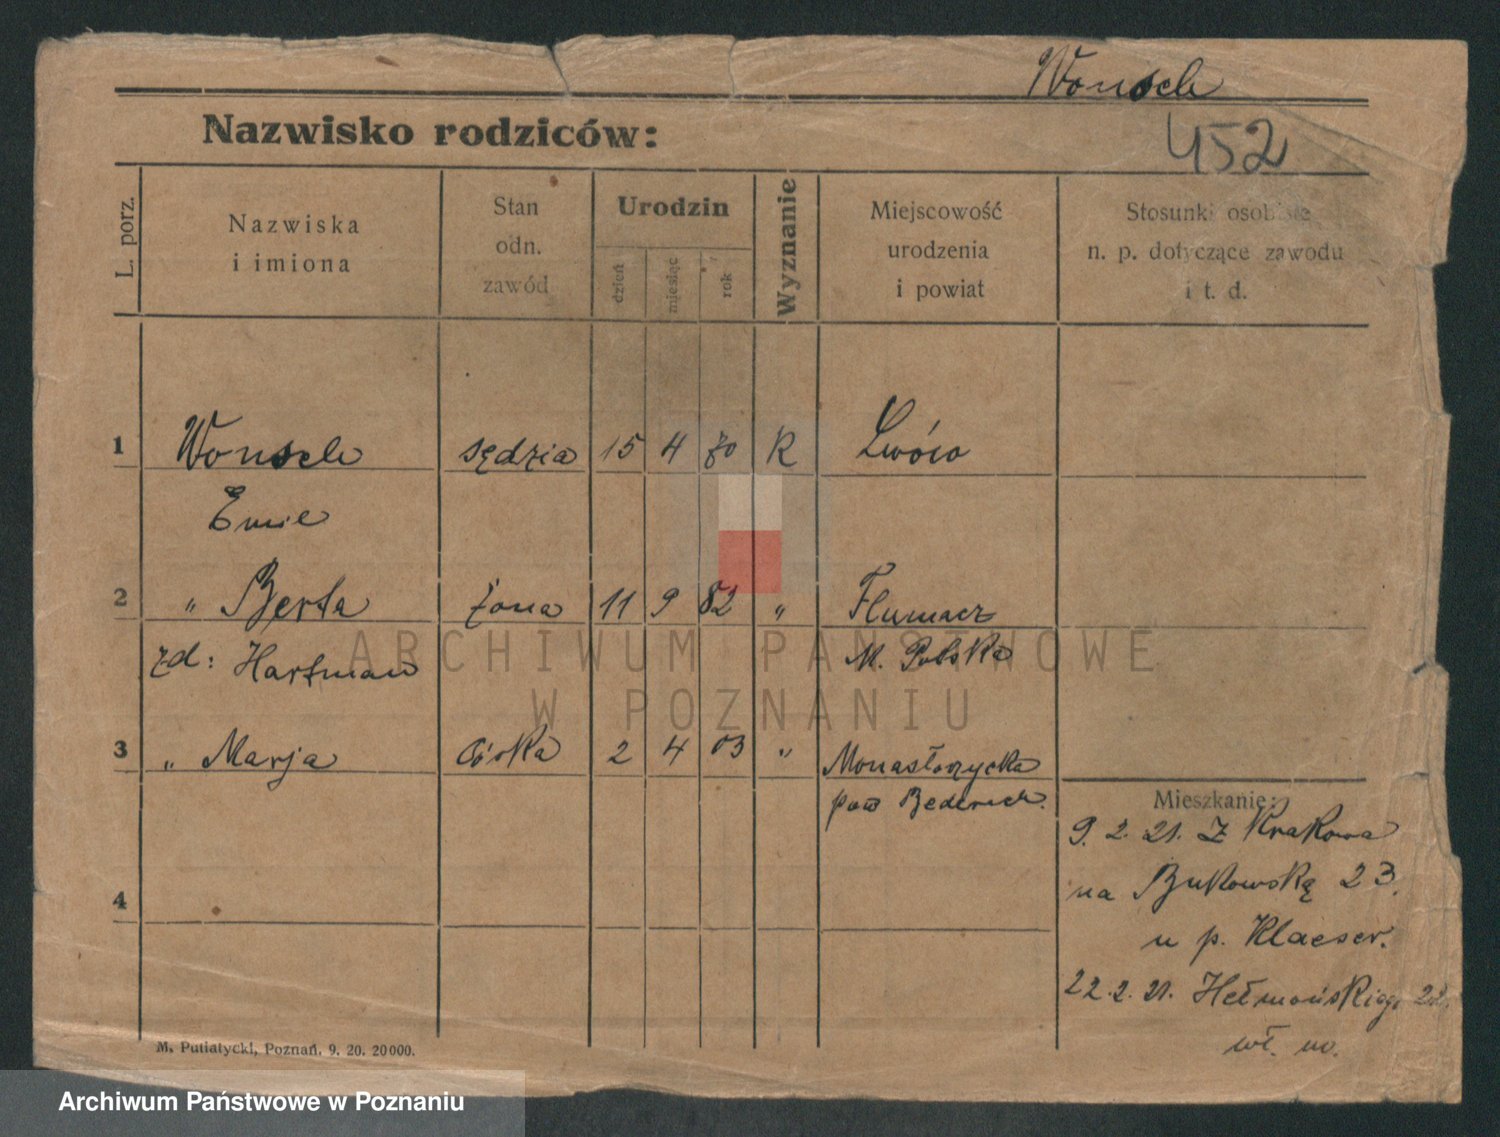 Wonsch
452
Nazwisko rodziców:
L. porz.
Nazwiska
i imiona
Stan
odn.
zawód
Urodzin
dzień
miesięc
rok
Wyznanie
Miejscowość
urodzenia
i powiat
Stosunki osobiste
n. p. dotyczące zawodu
i t. d.
1 Wonsch sędzia 15 4 70 R Lwów
Emil
2 " Berta żona 11 9 82 " Tłumacz
zd: Hartman M. Polska
3 " Marja córka 2 4 03 " Monasłorzycka
pow
Mieszkanie:
9. 2. 21. Z Krakowa
na Bukowską 23.
u p.
4
22. 2. 21. Hełmońskiego 22.
wł. m.
M. Putiatycki, Poznań. 9. 20. 20000.
ARCHIWUM PAŃSTWOWE
W POZNANIU
Archiwum Państwowe w Poznaniu